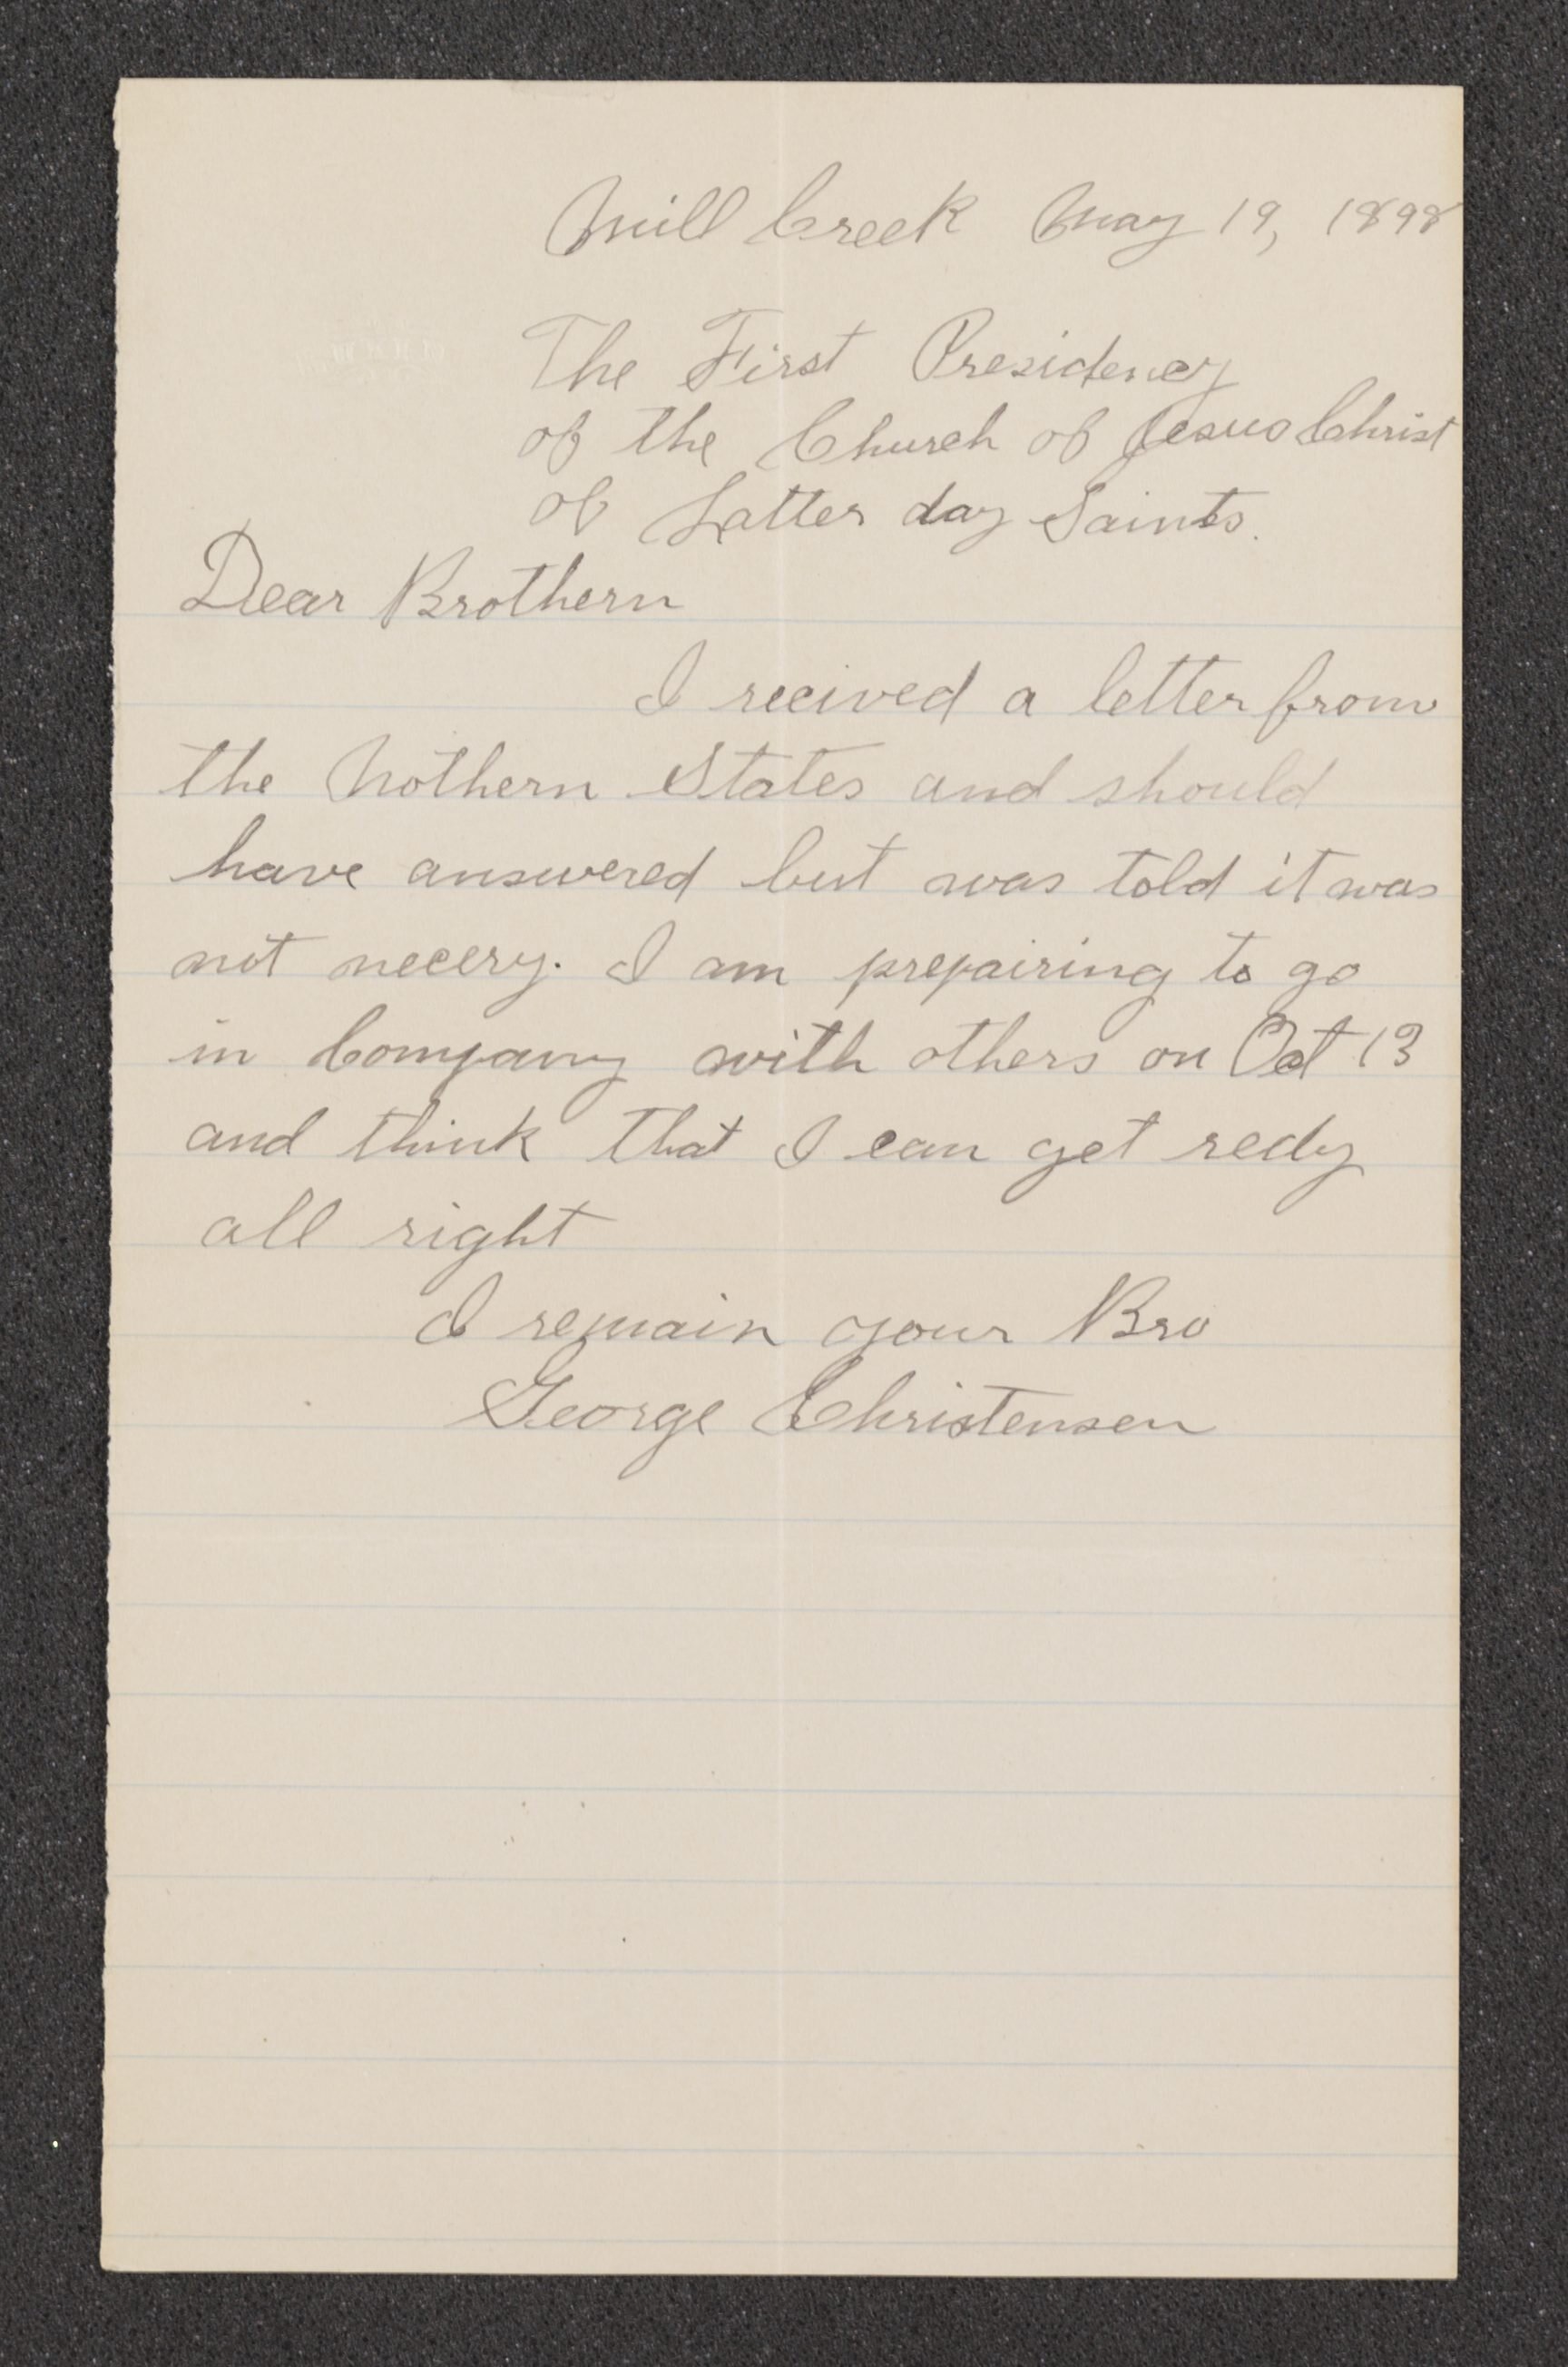 Mill Creek May 19, 1898
The First Presidency
of the Church of Jesus Christ
of Latter day Saints.
Dear Brothern
I recived a letter from
the Nothern States and should
have answered but was told it was
not necery. I am prepairing to go
in Company with others on Oct 13
and think that I can get redy
all right
I remain your Bro
George Christensen